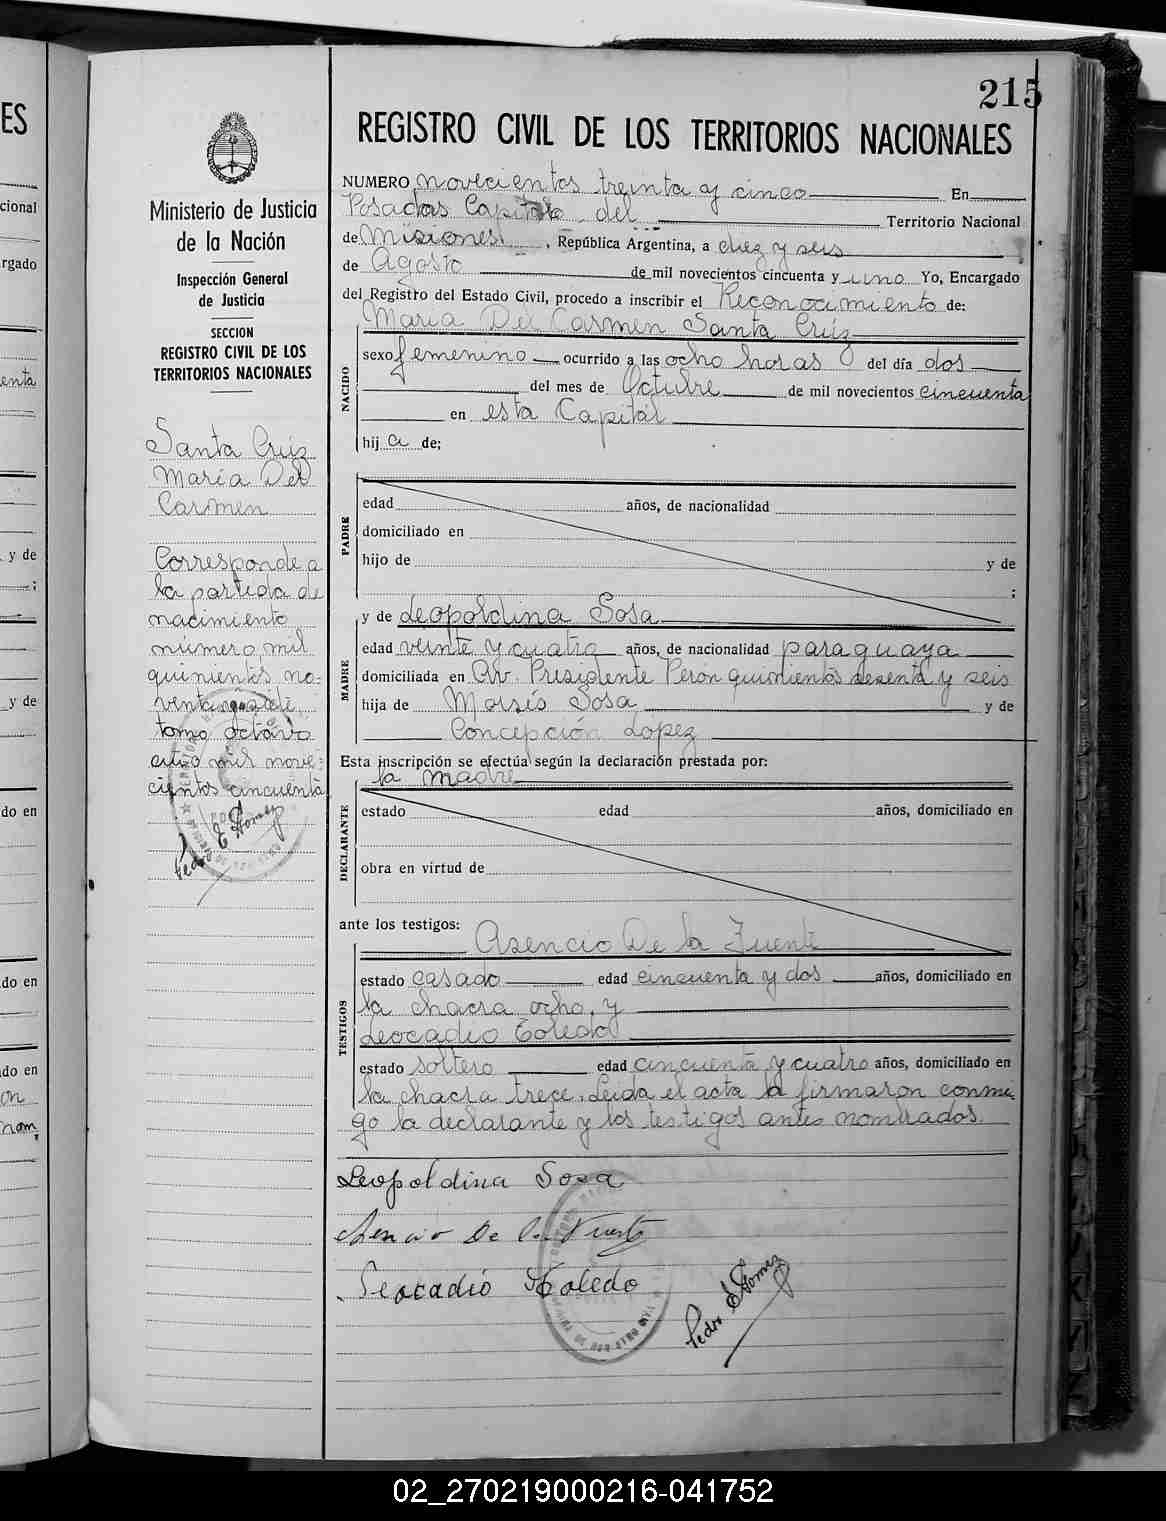 215
REGISTRO CIVIL DE LOS TERRITORIOS NACIONALES
Ministerio de Justicia
de la Nación
Inspección General
de Justicia
SECCION
REGISTRO CIVIL DE LOS
TERRITORIOS NACIONALES
Santa Cruz
María Del
Carmen
Corresponde a
la partida de
nacimiento
número mil
quinientos no-
venta y siete
tomo octavo
año mil nove-
cientos cincuenta
Pedro E Gomez
NUMERO novecientos treinta y cinco En
Posadas Capital del Territorio Nacional
de Misiones, República Argentina, a diez y seis
de Agosto de mil novecientos cincuenta y uno Yo, Encargado
del Registro del Estado Civil, procedo a inscribir el Reconocimiento de:
María Del Carmen Santa Cruz
NACIDO
sexo femenino ocurrido a las ocho horas del día dos
del mes de Octubre de mil novecientos cincuenta
en esta Capital
hij a de;
PADRE
edad años, de nacionalidad
domiciliado en
hijo de y de
;
y de Leopoldina Sosa
MADRE
edad veinte y cuatro años, de nacionalidad paraguaya
domiciliada en Av. Presidente Perón quinientos sesenta y seis
hija de Moisés Sosa y de
Concepción López
Esta inscripción se efectúa según la declaración prestada por:
la madre
DECLARANTE
estado edad años, domiciliado en
obra en virtud de
ante los testigos:
Asencio De la Fuente
TESTIGOS
estado casado edad cincuenta y dos años, domiciliado en
la chacra ocho, y
Leocadio Toledo
estado soltero edad cincuenta y cuatro años, domiciliado en
la chacra trece. Leída el acta la firmaron conmi-
go la declarante y los testigos antes nombrados.
Leopoldina Sosa
Asencio De la Fuente
Leocadio Toledo
Pedro E Gomez
ES
cional
rgado
enta
y de
;
y de
do en
do en
do en
on
nom,
02_270219000216-041752